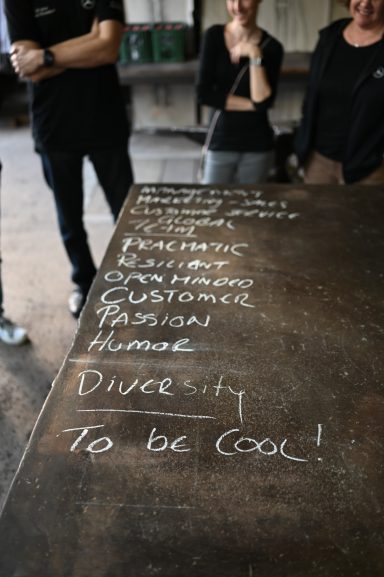 MANAGEMENT
MARKETING - SALES
CUSTOMER SERVICE
GLOBAL
TEAM
PRAGMATIC
RESILIENT
OPEN MINDED
CUSTOMER
PASSION
HUMOR
DIVERSITY
To be COOL!